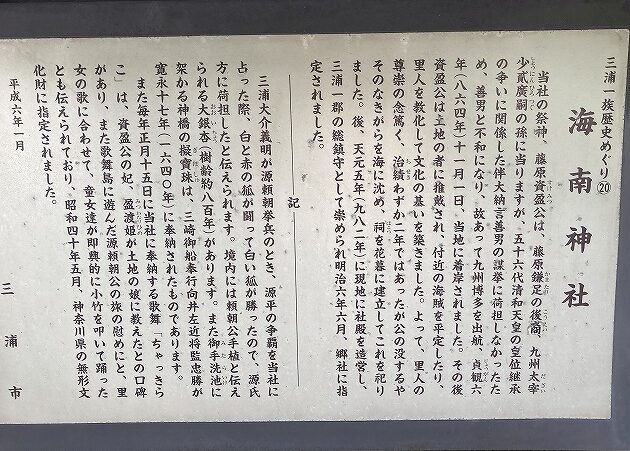 三浦一族歴史めぐり⑳
海南神社
当社の祭神、藤原資盈公は、藤原鎌足の後裔、九州太宰
少貳廣嗣の孫に当りますが、五十六代清和天皇の皇位継承
の争いに関係した伴大納言善男の謀挙に荷担しなかったた
め、善男と不和になり、故あって九州博多を出航、貞観六
年（八六四年）十一月一日、当地に着岸されました。その後
資盈公は土地の者に推戴され、付近の海賊を平定したり、
里人を教化して文化の基いを築きました。よって、里人の
尊崇の念篤く、治績わずか二年ではあったが公の没するや
そのなきがらを海に沈め、祠を花暮に建立してこれを祀り
ました。後、天元五年（九八二年）に現地に社殿を造営し、
三浦一郡の総鎮守として崇められ明治六年六月、郷社に指
定されました。
記
三浦大介義明が源頼朝挙兵のとき、源平の争覇を当社に
占った際、白と赤の狐が闘って白い狐が勝ったので、源氏
方に荷担したと伝えられます。境内には頼朝公手植と伝え
られる大銀杏（樹齢約八百年）があります。また御手洗池に
架かる神橋の擬宝珠は、三崎御船奉行向井左近将監忠勝が
寛永十七年（一六四〇年）に奉納されたものであります。
また毎年正月十五日に当社に奉納する歌舞「ちゃっきら
こ」は、資盈公の妃、盈渡姫が土地の娘に教えたとの口碑
があり、また歌舞島に遊んだ源頼朝公の旅の慰めにと、里
女の歌に合わせて、童女達が即興的に小竹を叩いて踊った
とも伝えられており、昭和四十年五月、神奈川県の無形文
化財に指定されました。
平成六年一月
三浦市